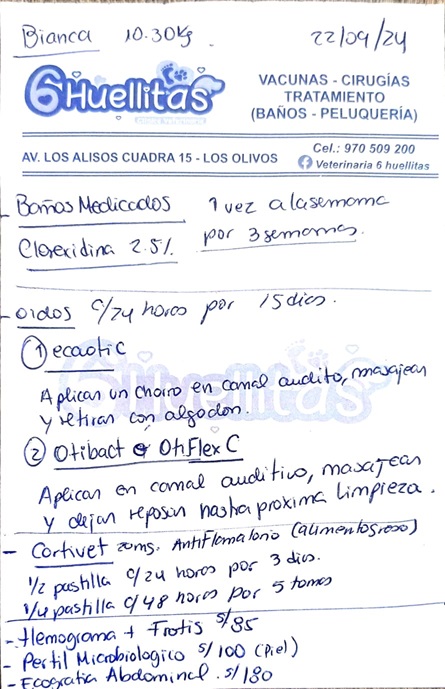 Bianca 10.30Kg 22/09/24
6Huellitas
VACUNAS - CIRUGÍAS
TRATAMIENTO
(BAÑOS - PELUQUERÍA)
AV. LOS ALISOS CUADRA 15 - LOS OLIVOS
Cel.: 970 509 200
Veterinaria 6 huellitas
- Baños Medicados 1 vez a la semana
Clorexidina 2.5% por 3 semanas.
- oidos c/24 horas por 15 dias.
① ecaotic
Aplicar un chorro en canal audito, masajear
y retirar con algodon.
② Otibact o Otiflex C
Aplicar en canal auditivo, masajear
y dejar reposar hasta proxima limpieza.
- Cortivet 20mg. Antiflamatorio (alimentogroso)
1/2 pastilla c/24 horas por 3 dias.
1/4 pastilla c/48 horas por 5 tomas
- Hemograma + Frotis s/85
- Perfil Microbiologico s/100 (Piel)
- Ecografia Abdominal. s/180